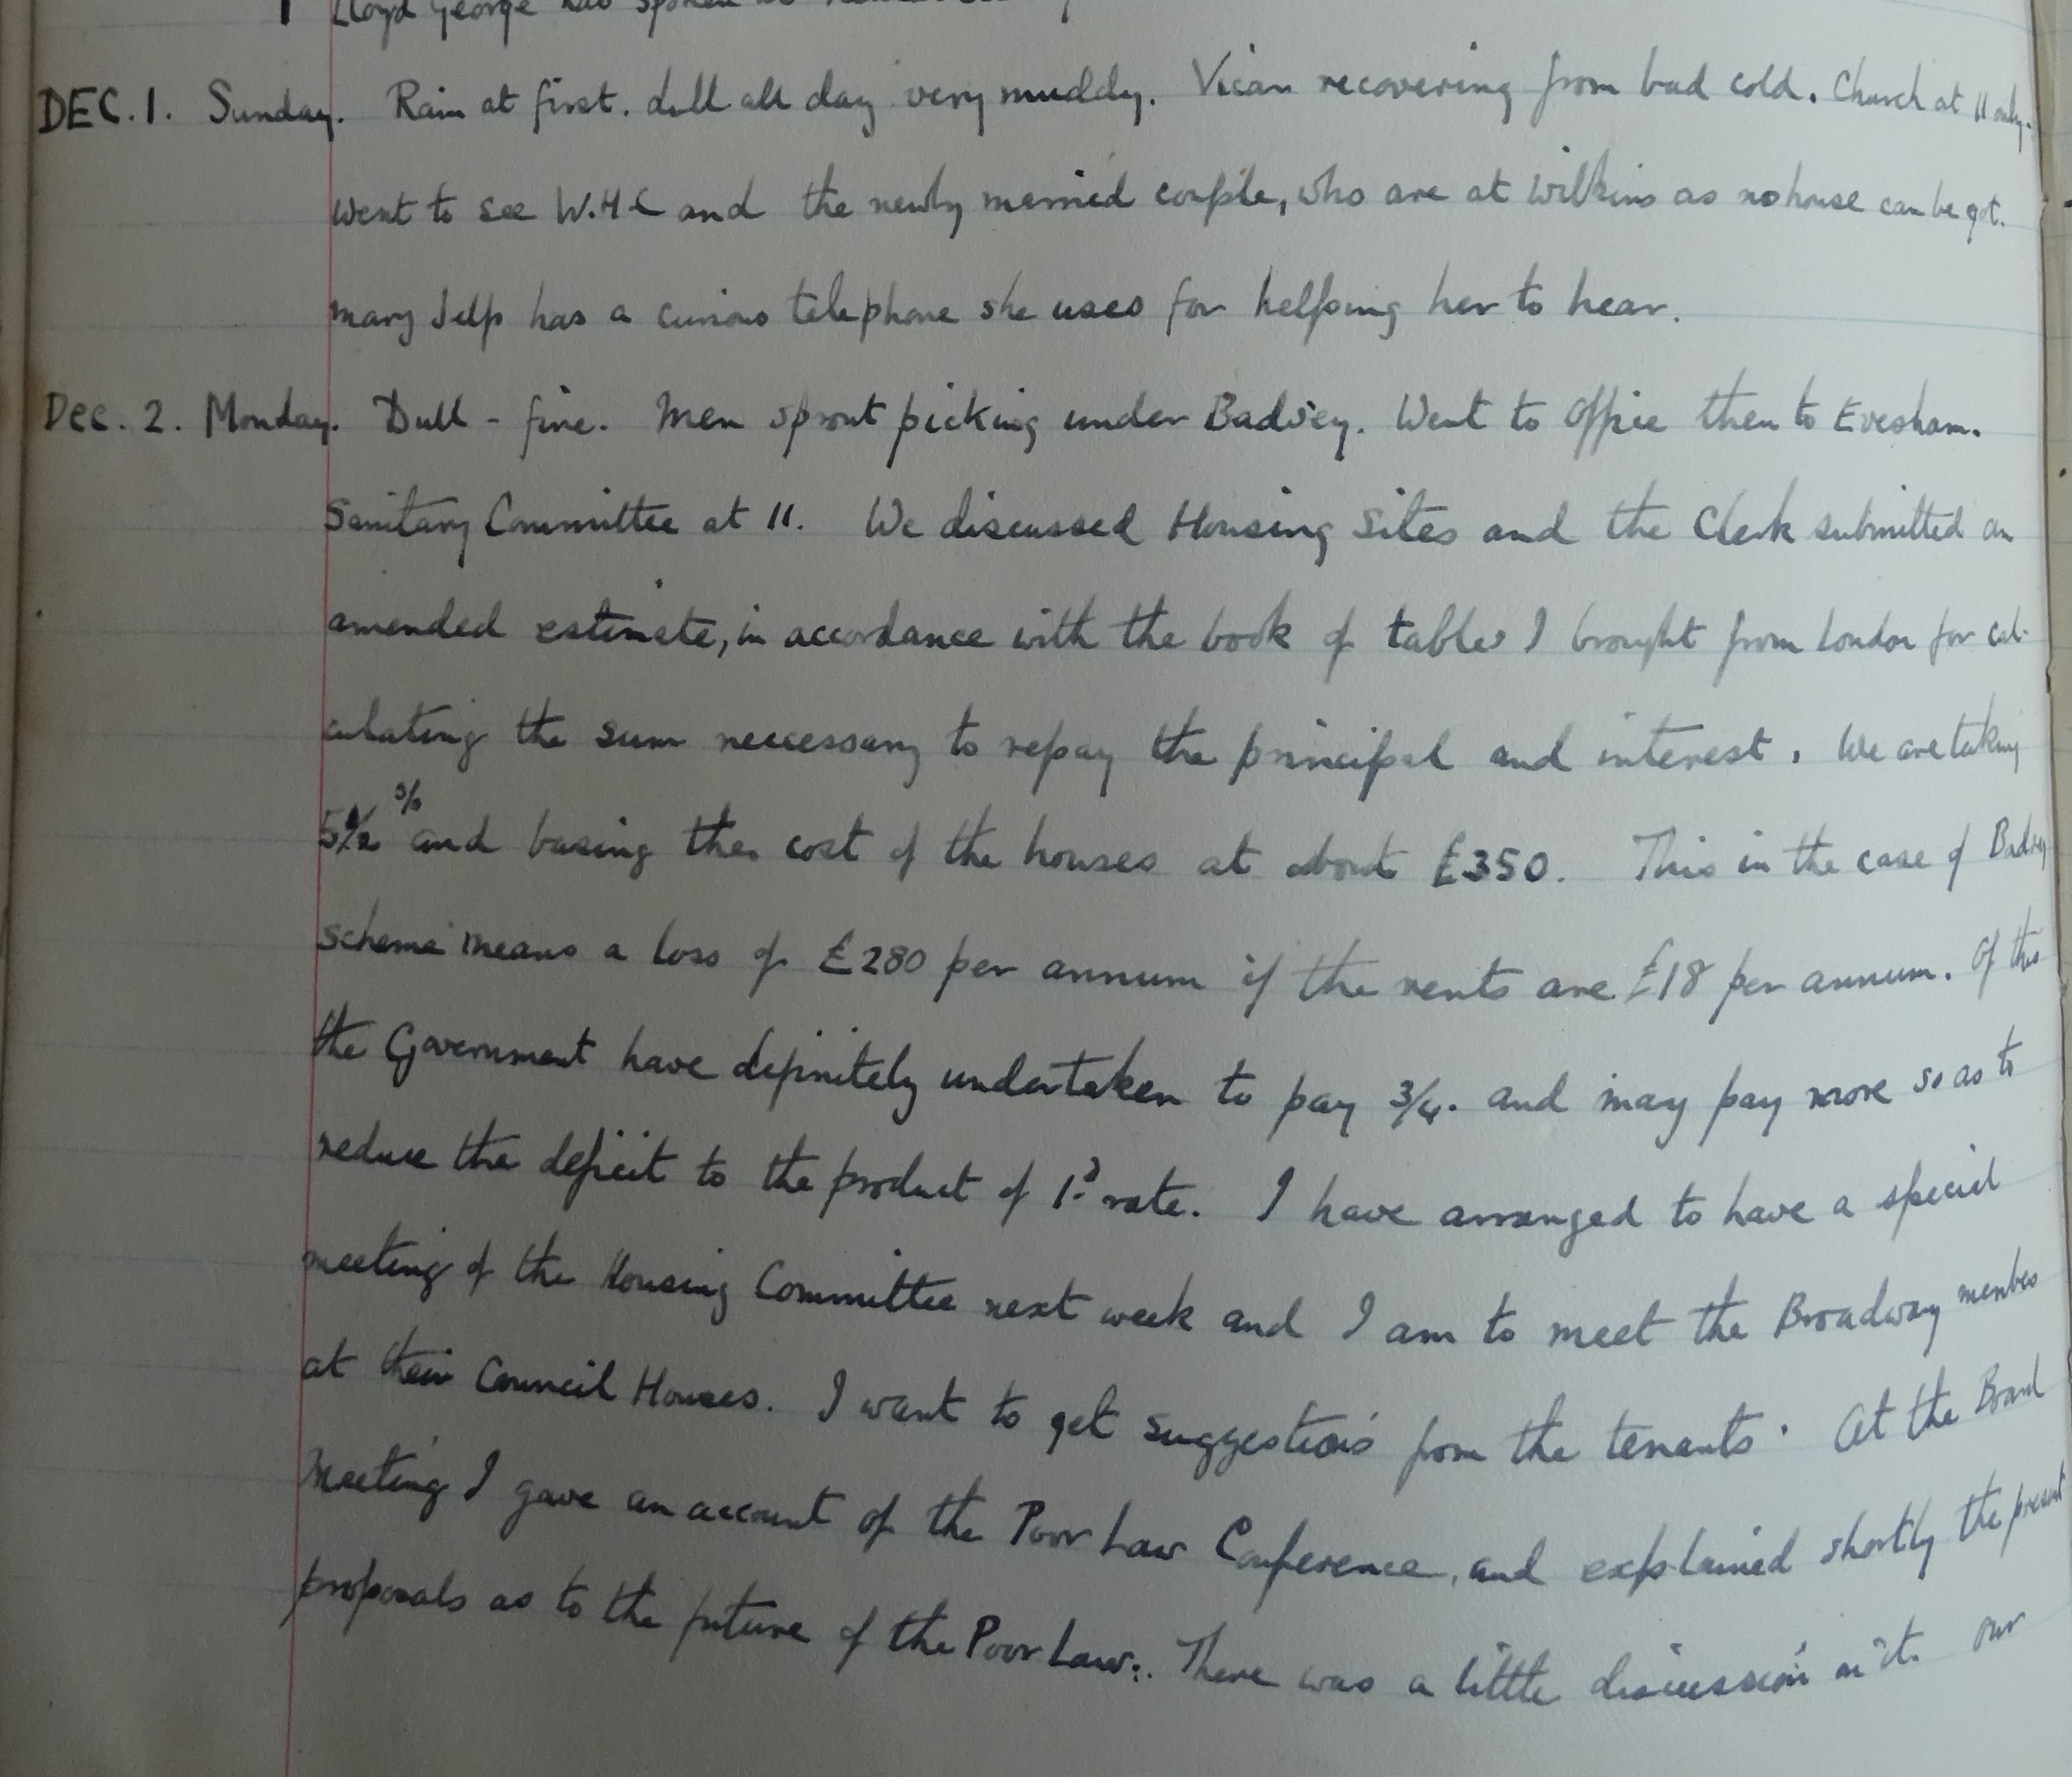 Lloyd George has spoken we
DEC. 1. Sunday. Rain at first. dull all day very muddy. Vicar recovering from bad cold. Church at 11 only.
Went to see W.H.C and the newly married couple, who are at Wilkins as no house can be got.
Mary Jelp has a curious telephone she uses for helping her to hear.
Dec. 2. Monday. Dull - fine. Men sprout picking under Badsey. Went to Office then to Evesham.
Sanitary Committee at 11. We discussed Housing Sites and the Clerk submitted an
amended estimate, in accordance with the book of tables I brought from London for cal-
culating the sum neccessary to repay the principal and interest. We are taking
5½ % and basing the cost of the houses at about £350. This in the case of Badsey
scheme means a loss of £280 per annum if the rents are £18 per annum. Of this
the Government have definitely undertaken to pay 3/4. and may pay more so as to
reduce the deficit to the product of 1d rate. I have arranged to have a special
meeting of the Housing Committee next week and I am to meet the Broadway members
at their Council Houses. I want to get suggestions from the tenants. At the Board
Meeting I gave an account of the Poor Law Conference, and explained shortly the present
proposals as to the future of the Poor Law. There was a little discussion on it. Our